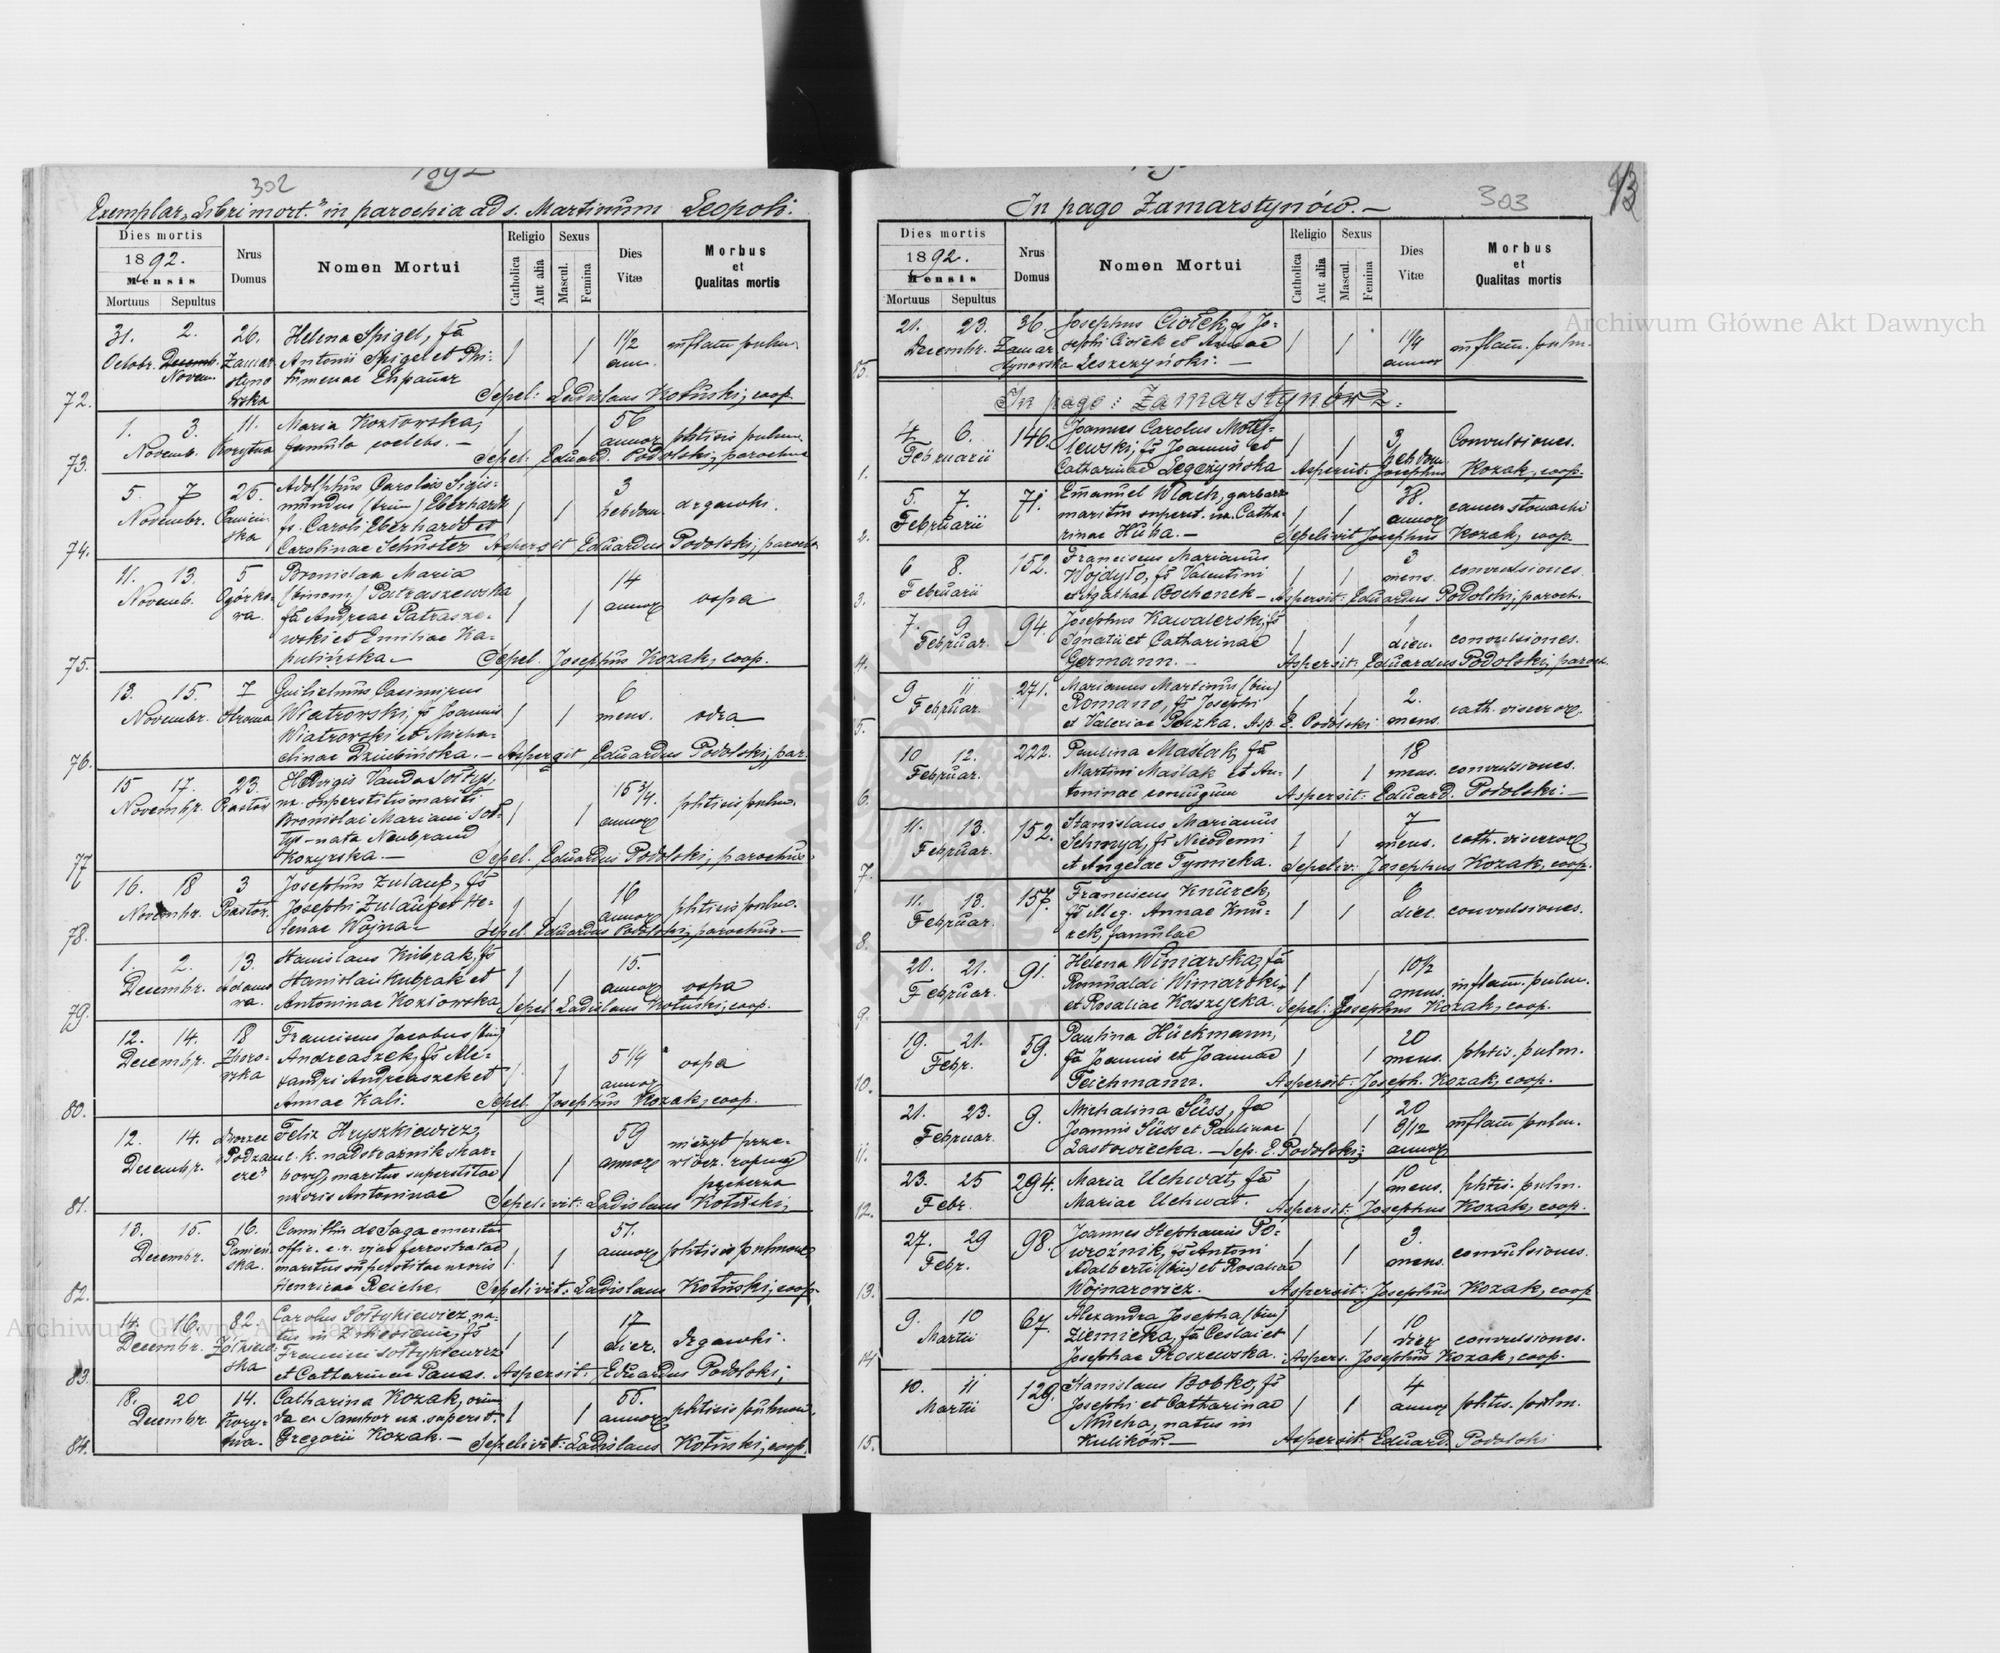 302
1892
Exemplar „Libri mort." in parochia ad s. Martinum Leopoli.
Dies mortis
1892.
Mensis
Mortuus Sepultus
Nrus Domus
Nomen Mortui
Religio
Catholica
Aut alia
Sexus
Mascul.
Femina
Dies Vitæ
Morbus et Qualitas mortis
72.
31. 2. 26. Helena Spigel, fa 1½ inflam. pulm.
Octobr. Decemb. Novem. Zamarstynowska Antonii Spigel et ann.
Sepel: Ladislaus Kotuski, coop.
73.
1. 3. 11. Maria Kozłowska, 56
Novemb. famula coelebs. — annor phtisis pulm.
Sepel: Eduard. Podolski, parochus
74.
5. 7 25. Adolphus Carolus Sigis- 3
Novembr. mundus (trin) Eberhardt hebdom. drgawki.
fs. Caroli Eberhardt et
Carolinae Schuster Aspersit Eduardus Podolski, paroch
75.
11. 13. 5 Bronislaa Maria 14
Novemb. Ogórkowa. (binom) Patraszewska annor ospa
fa Andreae Patrasze-
wski et Emiliae Ka-
pulińska. Sepel. Josephus Kozak, coop.
76.
13. 15. 7 Guilielmus Casimirus 6
Novembr. Wiatrowski, fs Joannis mens. odra
Wiatrowski et Micha-
elinae Dziubińska. — Aspergit Eduardus Podolski, par.
77
15 17. 23. Hedvigis Vanda Sołtys, 15¾.
Novembr. ux. superstitis mariti annor phtisis pulm.
Bronislai Mariani Soł-
tys – nata Neubrand
Kozyrska. — Sepel. Eduardus Podolski, parochus
78.
16. 18 3 Josephus Zulauf, fs 16
Novembr. Josephi Zulauf et He- annor phtisis pulm.
lenae Wojna. Sepel. Eduardus Podolski, parochus. —
79.
1. 2. 13. Stanislaus Kubrak, fs 15.
Decembr. Stanislai Kubrak et annor ospa
Antoninae Kozłowska Sepel Ladislaus Kotuski, coop.
80.
12. 14. 18 Franciscus Jacobus (bin)
Decembr. Andreaszek, fs Ale- 5¼ ospa
xandri Andreaszek et annor
Annae Kali. Sepel. Josephus Kozak, coop.
81.
12. 14. Dworzec Felix Hryszkiewicz, 59
Decembr. Podzamcze c. k. nadstrażnik skar- annor
bowy, maritus superstitae
uxoris Antoninae Sepelivit: Ladislaus Kotuski,
82.
13. 15. 16. Camillus de Saga emeritus 57.
Decembr. offic. c. r. viae ferrostratae annor phtisis pulmon
maritus superstitae uxoris
Henricae Reiche. Sepelivit: Ladislaus Kotuski, coop.
83.
14. 16. 82. Carolus Sołtykiewicz, na- 17
Decembr. Żółkiewska dier. Drgawki.
Francisci Sołtykiewicz
et Catharinae Panas. Aspersit: Eduardus Podolski,
84.
18. 20 14. Catharina Kozak, oriun- 55.
Decembr. da ex Sambor ux. superst. annor phtisis pulmon.
Gregorii Kozak. — Sepelivit: Ladislaus Kotuski, coop.
303
In pago Zamarstynów. —
Dies mortis
1892.
Mensis
Mortuus Sepultus
Nrus Domus
Nomen Mortui
Religio
Catholica
Aut alia
Sexus
Mascul.
Femina
Dies Vitæ
Morbus et Qualitas mortis
85.
21. 23. 36 Josephus Ciołek, fs Jo- 1¼
Decembr. Zamarstynowska sephi Ciołek et Annae annor inflam. pulm.
Leszczyński. —
In pago: Zamarstynów.
1.
4. 6. 146. Joannes Carolus Moty- 3
Februarii lewski, fs Joannis et hebdom Convulsiones.
Catharinae Legeżyńska Aspersit: Josephus Kozak, coop.
2.
5. 7. 71. Emanuel Wlach, garbarz 38.
Februarii maritus superst. ux. Catha- annor cancer stomachi
rinae Huha. — Sepelivit Josephus Kozak, coop.
3.
6 8. 152. Franciscus Marianus 3
Februarii Wojdyło, fs Valentini mens. convulsiones.
et Agathae Bochenek — Aspersit: Eduardus Podolski, paroch.
4.
7. 9 94. Josephus Kawalerski, fs 1
Februar. Ignatii et Catharinae diem convulsiones.
Germann. — Aspersit: Eduardus Podolski, paroch.
5.
9 11 271. Marianus Martinus (bin) 2.
Februar. Romano, fs Josephi mens. cath. visceror.
et Valeriae Paczka. Asp. E. Podolski
6.
10 12. 222. Paulina Maślak, fa 18
Februar. Martini Maślak et An- mens. convulsiones.
toninae conjugum Aspersit: Eduard. Podolski. —
7.
11. 13. 152. Stanislaus Marianus 7
Februar. Schmyd, fs Nicodemi mens. cath. visceror
et Angelae Tymicka. Sepeliv: Josephus Kozak, coop.
8.
11. 13. 157. Franciscus Knurek, 6
Februar. fs illeg. Annae Knu- dier. convulsiones.
rek, famulae
9.
20. 21. 91. Helena Winiarska, fa 10½
Februar. Romualdi Winiarski mens. inflam. pulm.
et Rosaliae Kaszycka. Sepel: Josephus Kozak, coop.
10.
19. 21. 59. Paulina Hückmann, 20
Febr. fa Joannis et Joannae mens. phtis. pulm.
Teichmann. Aspersit: Joseph. Kozak, coop.
11.
21. 23. 9. Michalina Süss, fa 20
Februar. Joannis Süss et Paulinae 8/12 inflam pulm.
Zastowiecka. — Sep. E. Podolski; annor
12.
23. 25 294. Maria Uchwat, fa 10
Febr. Mariae Uchwat. mens. phtis. pulm.
Aspersit: Josephus Kozak, coop.
13.
27. 29 98. Joannes Stephanus Po- 3.
Febr. wroźnik, fs Antoni mens. convulsiones.
Adalberti (bin) et Rosaliae
Wojnarowicz. Aspersit: Josephus Kozak, coop
14
9. 10 67. Alexandra Josepha (bin) 10
Martii Ziemicka, fa Ceslai et dier convulsiones.
Josephae Proszewska. Aspers. Josephus Kozak, coop.
15.
10. 11 129. Stanislaus Bobko, fs 4
Martii Josephi et Catharinae annor phtis. pulm.
Mucha, natus in
Kulików. — Aspersit: Eduard. Podolski
Archiwum Główne Akt Dawnych
Archiwum Główne Akt Dawnych